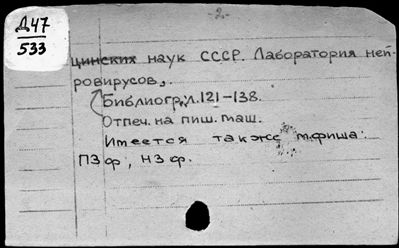 Д47
533
-2-
цинских наук СССР. Лаборатория ней-
ровирусов.
Библиогр.: л. 121-138.
Отпеч. на пиш. маш.
Имеется также т.фиша:
ПЗф, НЗф.